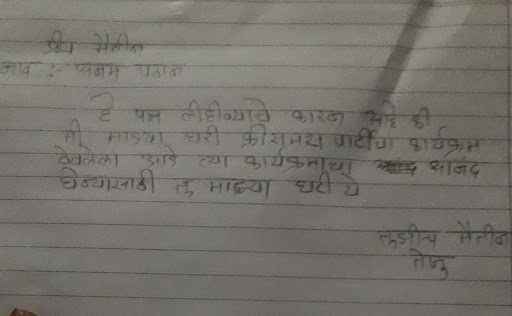 प्रीय मैत्रीन
नाव :- सनम पठान
हे पत्र लीहीन्याचे कारन आहे की
मी माझ्या घरी क्रीसमस पार्टीचा कार्यक्रम
ठेवलेला आहे त्या कार्यक्रमाचा आनंद
घेन्यासाठी तु माझ्या घरी ये
तुझीच मैत्रीन